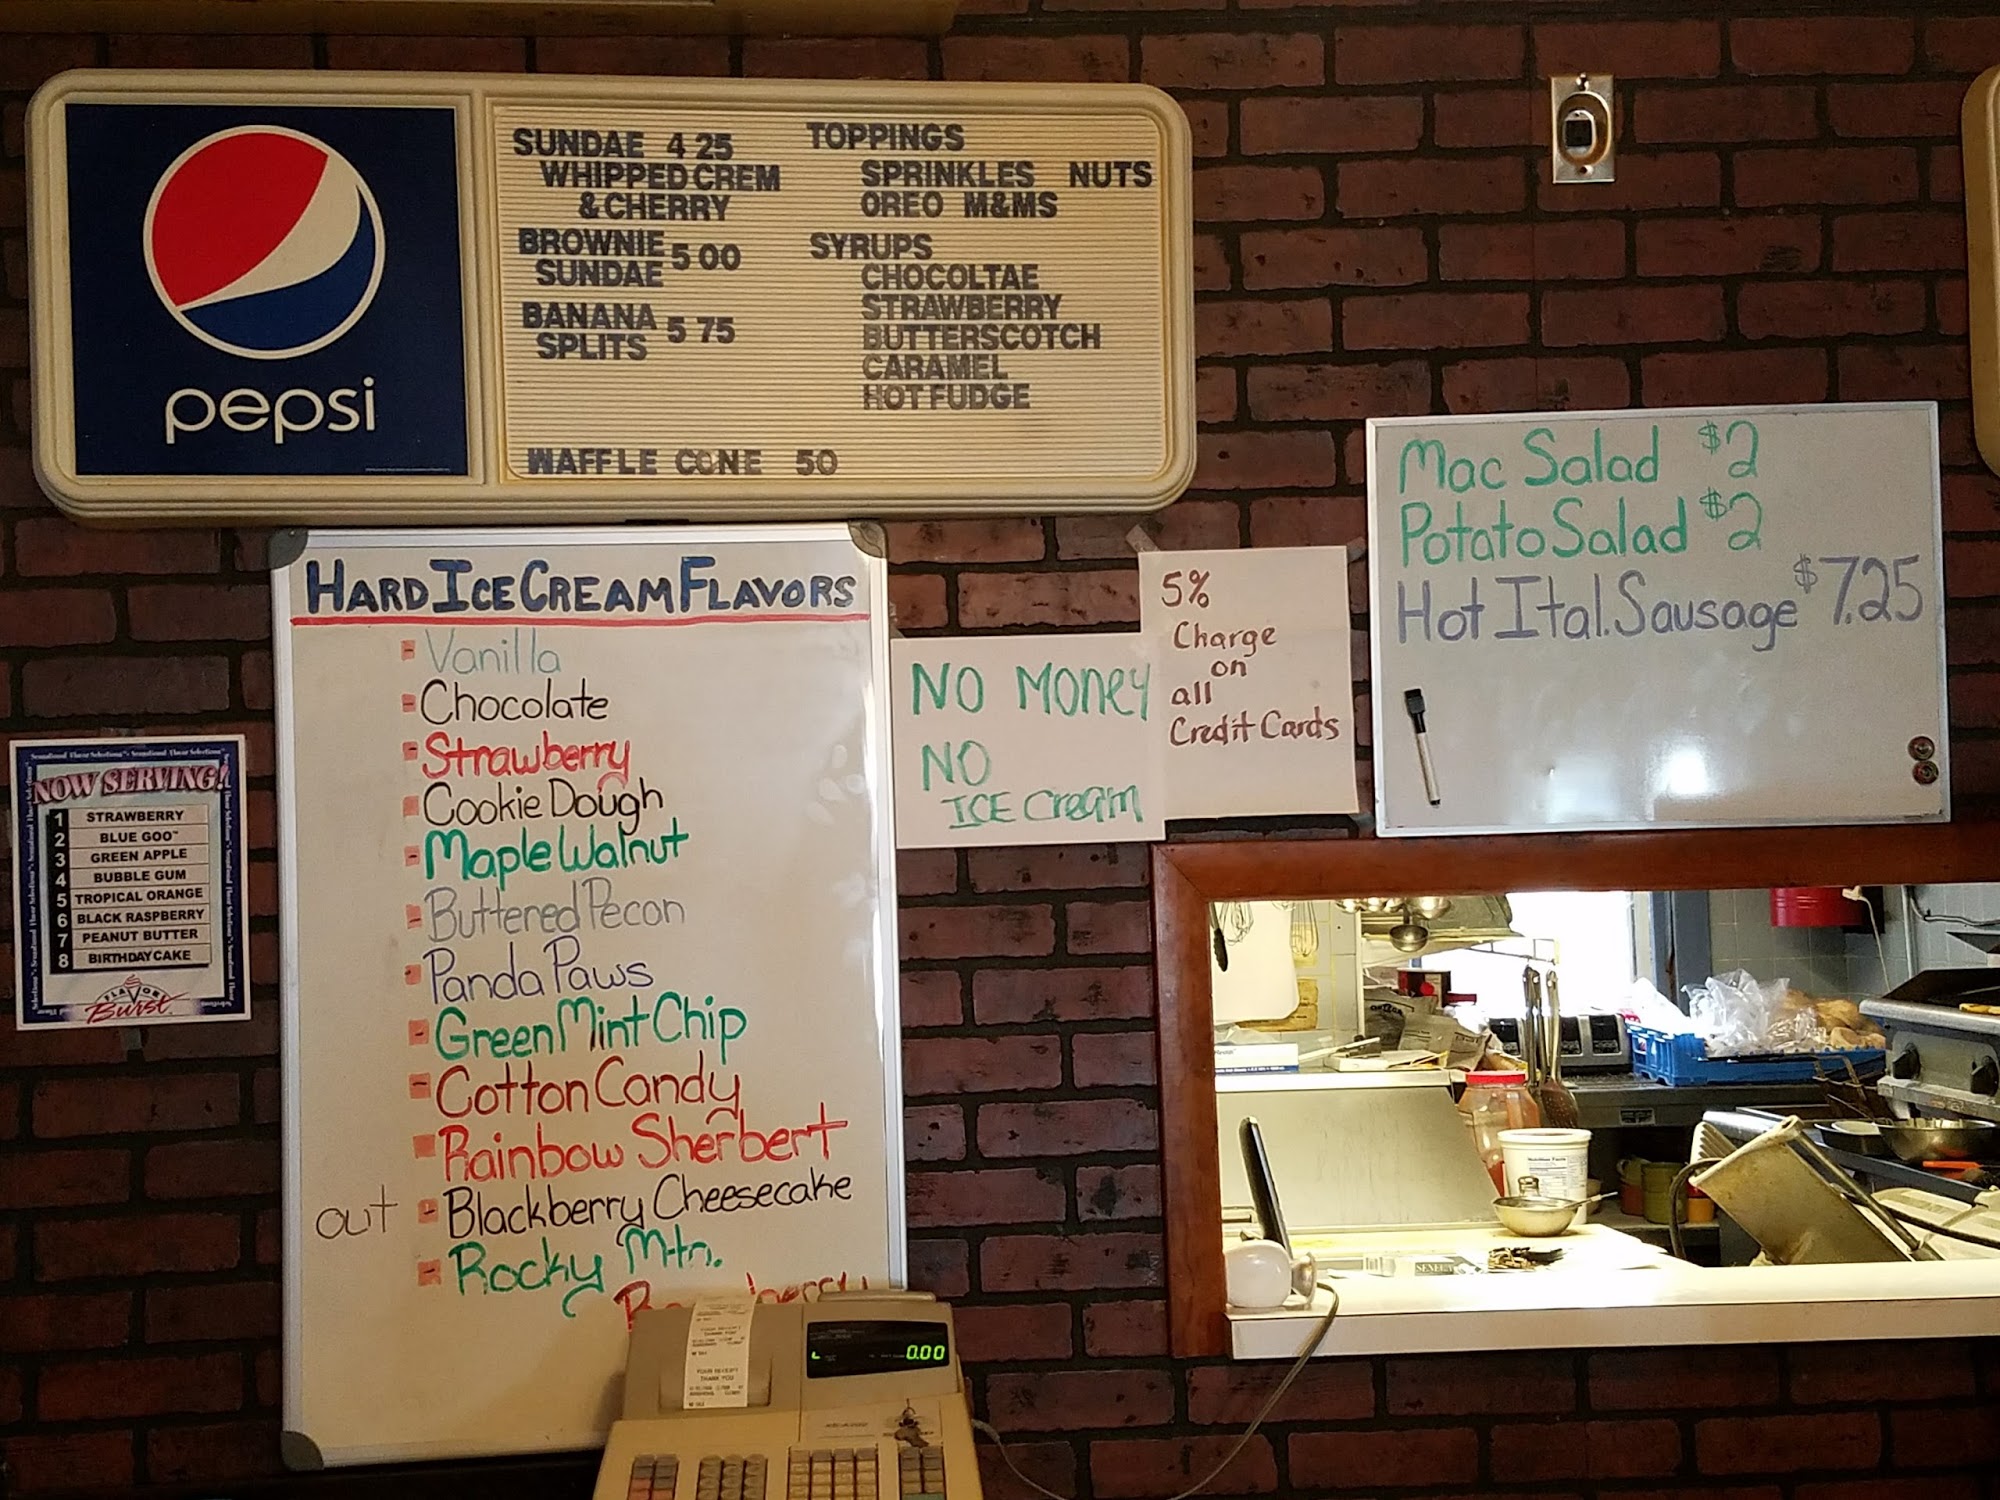 pepsi
SUNDAE 4 25
WHIPPED CREM
& CHERRY
BROWNIE
SUNDAE 5 00
BANANA
SPLITS 5 75
WAFFLE CONE 50
TOPPINGS
SPRINKLES NUTS
OREO M&MS
SYRUPS
CHOCOLTAE
STRAWBERRY
BUTTERSCOTCH
CARAMEL
HOT FUDGE
HARD ICE CREAM FLAVORS
- Vanilla
- Chocolate
- Strawberry
- Cookie Dough
- Maple Walnut
- Buttered Pecon
- Panda Paws
- Green Mint Chip
- Cotton Candy
- Rainbow Sherbert
out - Blackberry Cheesecake
- Rocky Mtn.
NOW SERVING!
1 STRAWBERRY
2 BLUE GOO™
3 GREEN APPLE
4 BUBBLE GUM
5 TROPICAL ORANGE
6 BLACK RASPBERRY
7 PEANUT BUTTER
8 BIRTHDAY CAKE
FLAVOR
Burst
NO MONEY
NO
ICE Cream
5%
Charge
on
all
Credit Cards
Mac Salad $2
Potato Salad $2
Hot Ital. Sausage $7.25
0.00